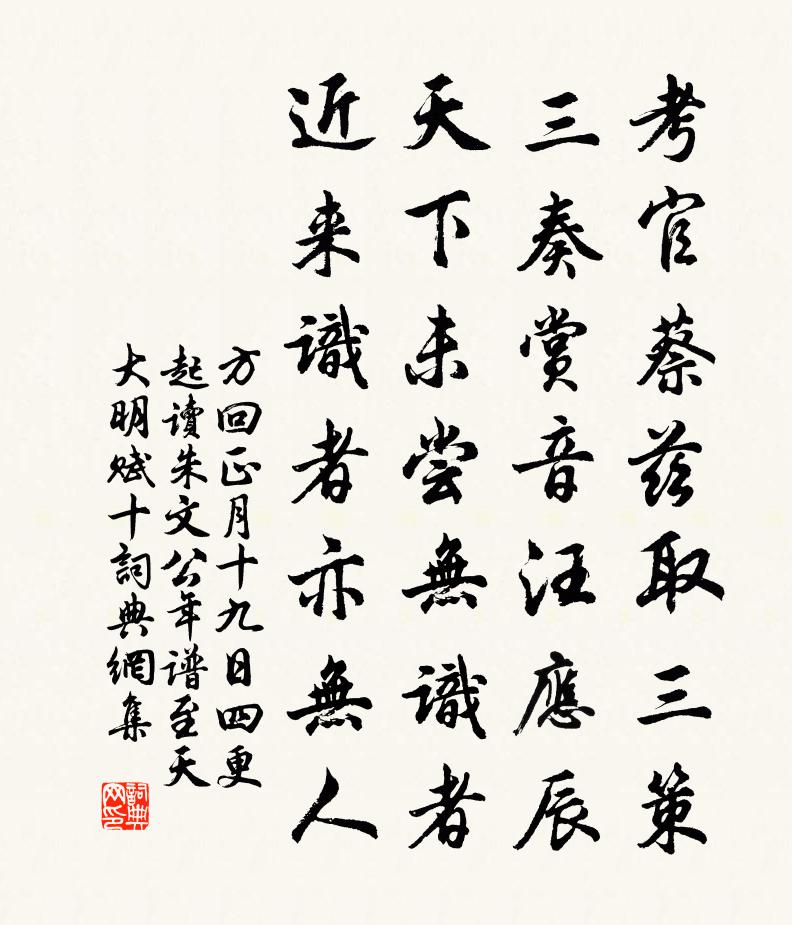 考官蔡茲取三策
三奏賞音汪應辰
天下未尝無識者
近来識者亦無人
方回正月十九日四更
起讀朱文公年谱至天
大明赋十詞典網集
詞典网印